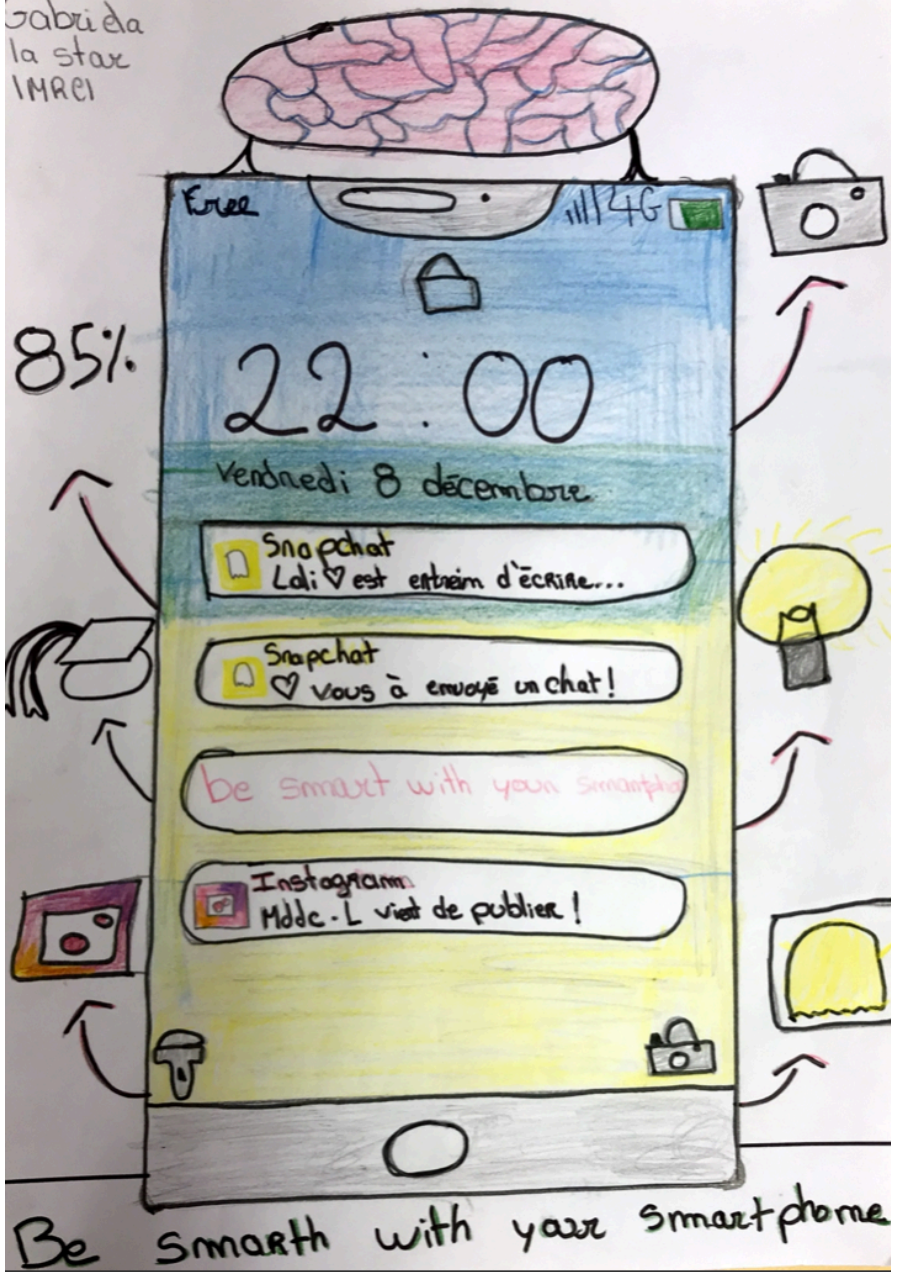 Gabriela
la star
1MRCI
Free
4G
85%
22:00
Vendredi 8 décembre
Snapchat
Lali♡est entreim d'écrire...
Snapchat
♡ vous à envoyé un chat!
be smart with your smartpho
Instagramm
Mddc.L vient de publier!
Be smarth with your smartphone